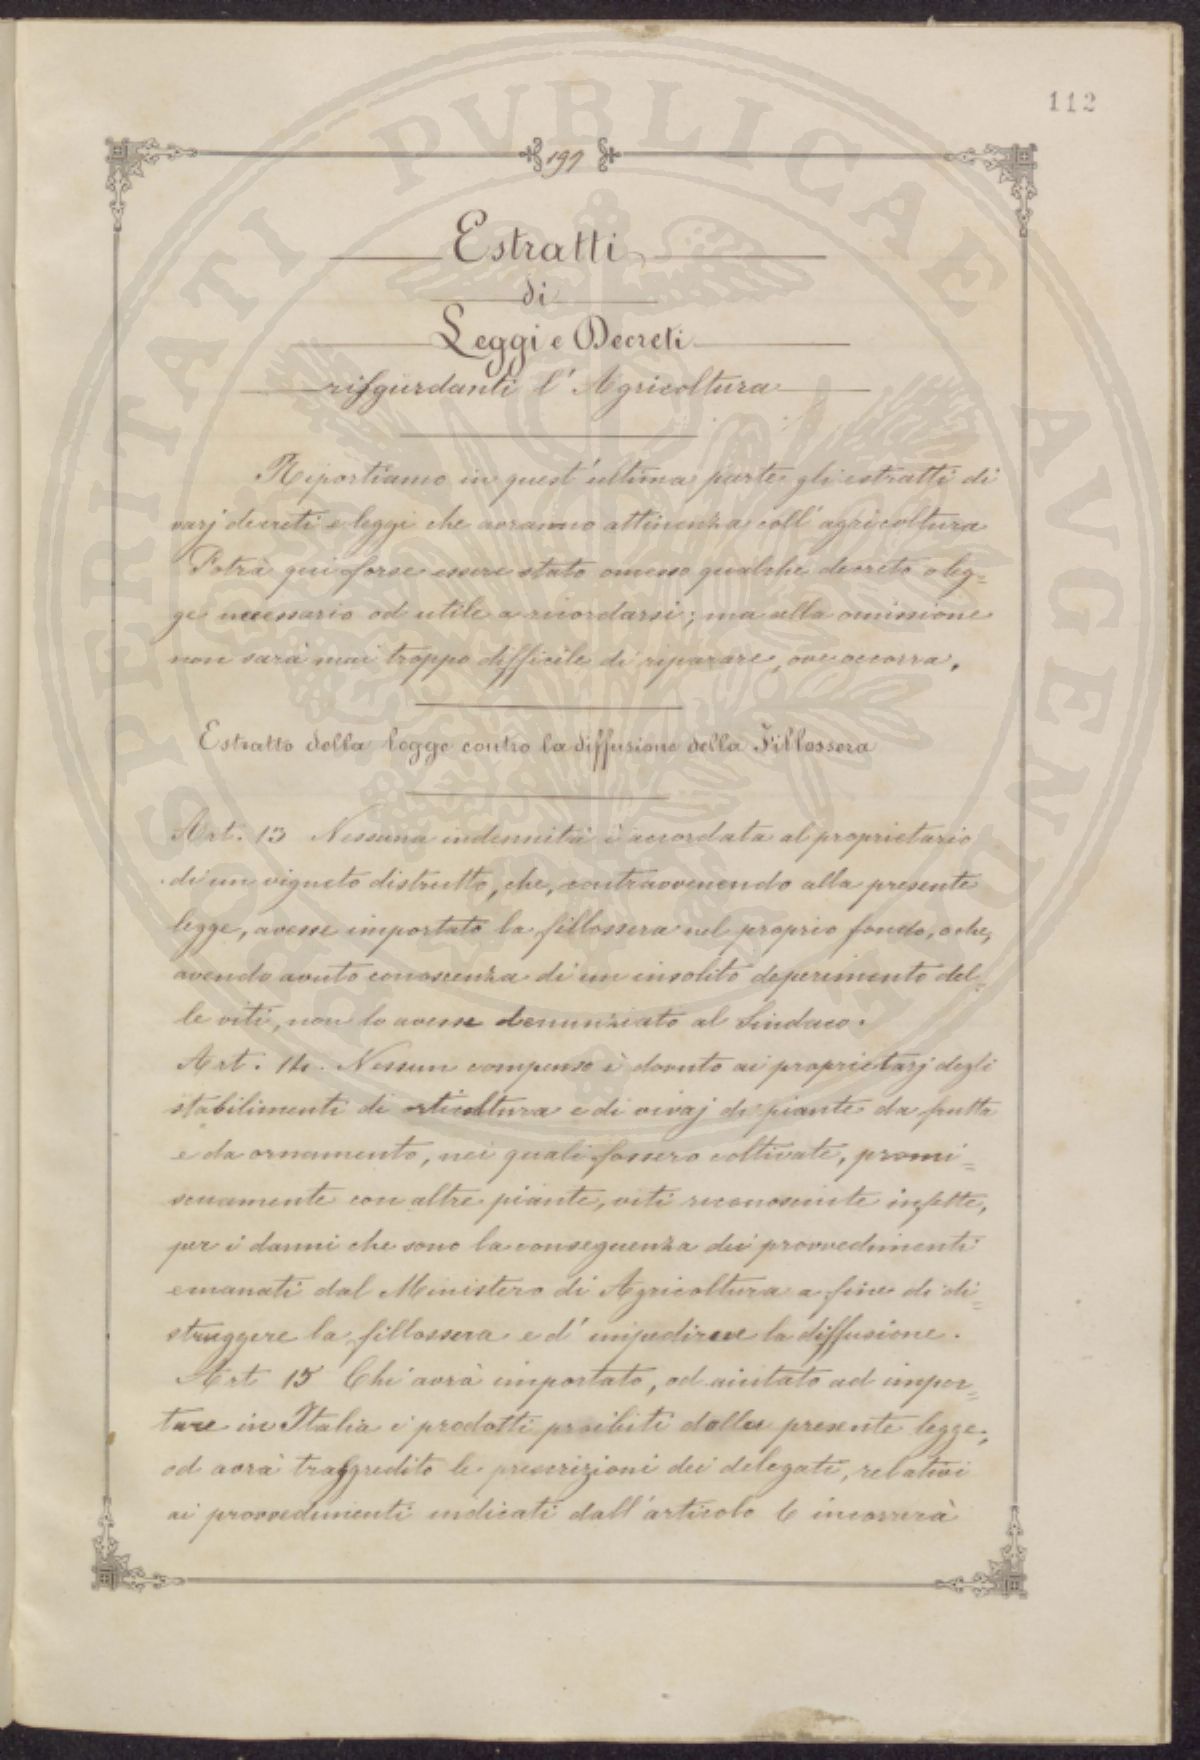 112
197
Estratti
di
Leggi e Decreti
risgurdanti l'Agricoltura
Riportiamo in quest'ultima parte gli estratti di
varj decreti e leggi che avranno attinenza coll'agricoltura
Potrà qui forse essere stato omesso qualche decreto o leg=
ge necessario od utile a ricordarsi; ma alla omissione
non sarà mai troppo difficile di riparare, ove occorra.
Estratto della legge contro la diffusione della Fillossera
Art. 13 Nessuna indennità è accordata al proprietario
di un vigneto distrutto, che, contravvenendo alla presente
legge, avesse importato la fillossera nel proprio fondo, o che,
avendo avuto conoscenza di un insolito deperimento del=
le viti, non lo avesse denunziato al Sindaco.
Art. 14. Nessun compenso è dovuto ai proprietarj degli
stabilimenti di orticultura e di vivaj di piante da frutta
e da ornamento, nei quali fossero coltivate, promi=
scuamente con altre piante, viti riconosciute infette,
per i danni che sono la conseguenza dei provvedimenti
emanati dal Ministero di Agricoltura a fine di di=
struggere la fillossera e d'impedirne la diffusione.
Art 15 Chi avrà importato, od aiutato ad impor=
tare in Italia i prodotti proibiti dalla presente legge,
od avrà trasgredito le prescrizioni dei delegati, relativi
ai provvedimenti indicati dall'articolo 6 incorrerà
PROSPERITATI PVBLICAE AVGENDAE